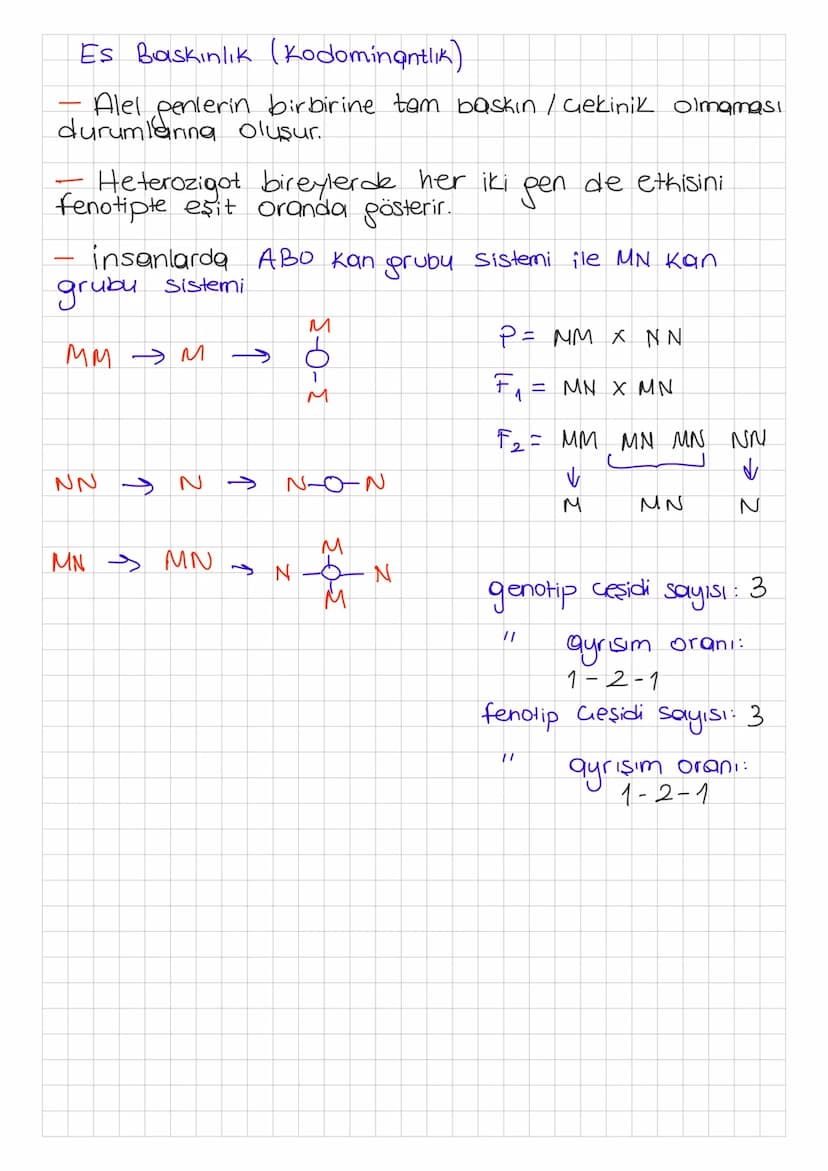 Es Baskınlık (Kodominantlık)
— Alel genlerin birbirine tam baskın / çekinik olmaması
durumlarına oluşur.
— Heterozigot bireylerde her iki gen de etkisini
fenotipte eşit oranda gösterir.
— insanlarda ABO kan grubu sistemi ile MN kan
grubu sistemi
MM → M →
M
M
NN → N → N N
MN → MN →
M
N N
M
P = MM x NN
F1 = MN x MN
F2 = MM MN MN NN
↓ ↓
M MN N
genotip çeşidi sayısı: 3
" ayrısım oranı:
1 - 2 - 1
fenotip çeşidi sayısı: 3
" ayrışım oranı:
1 - 2 - 1